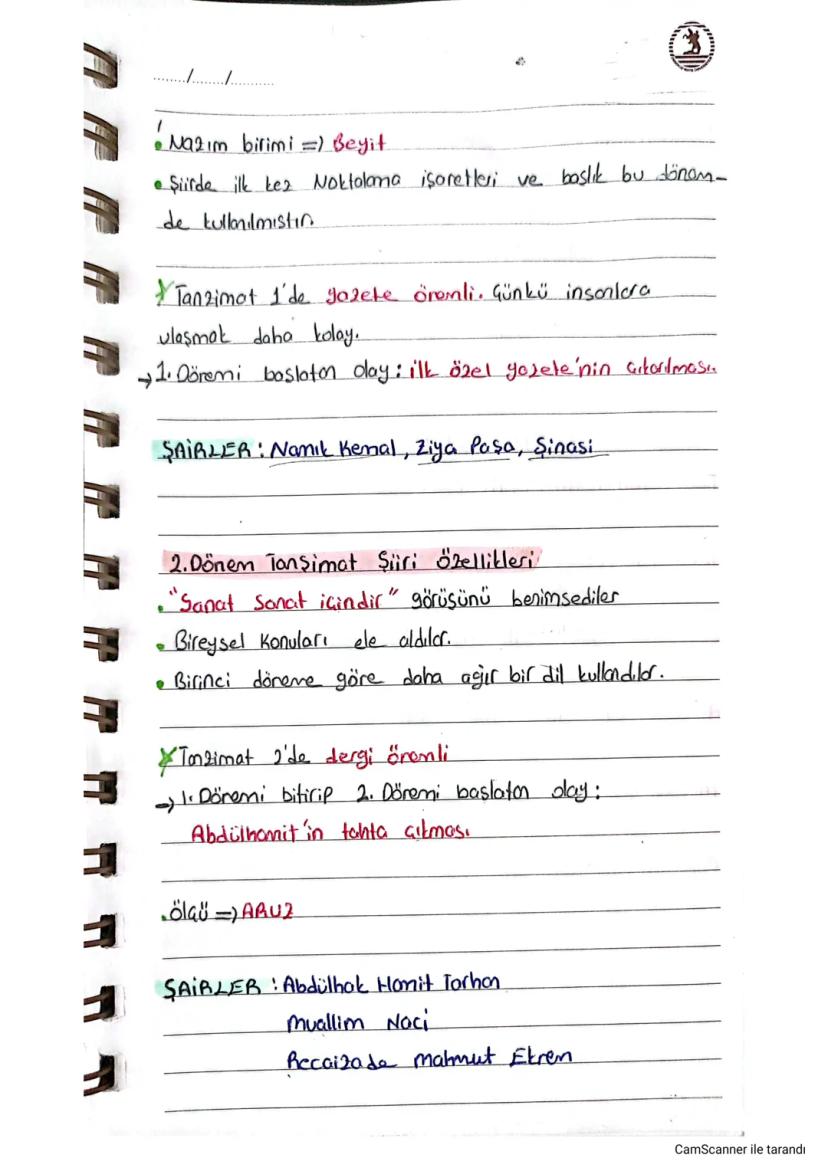 ......../......../...........
• Nazım birimi => Beyit
• Şiirde ilk kez Noktalama işaretleri ve başlık bu dönem-
de kullanılmıştır.
Tanzimat 1'de gazete önemli. Günkü insanlara
ulaşmak daha kolay.
→ 1. Dönemi başlatan olay: ilk özel gazete'nin çıkarılması.
ŞAİRLER : Namık Kemal, Ziya Paşa, Şinasi
2. Dönem Tanzimat Şiiri Özellikleri
• "Sanat sanat içindir" görüşünü benimsediler
• Bireysel konuları ele aldılar.
• Birinci döneme göre daha ağır bir dil kullandılar.
Tanzimat 2'de dergi önemli
→ 1. Dönemi bitirip 2. Dönemi başlatan olay:
Abdülhamit'in tahta çıkması
• Ölçü => ARUZ
ŞAİRLER : Abdülhak Hamit Tarhan
Muallim Naci
Recaizade Mahmut Ekrem
CamScanner ile tarandı